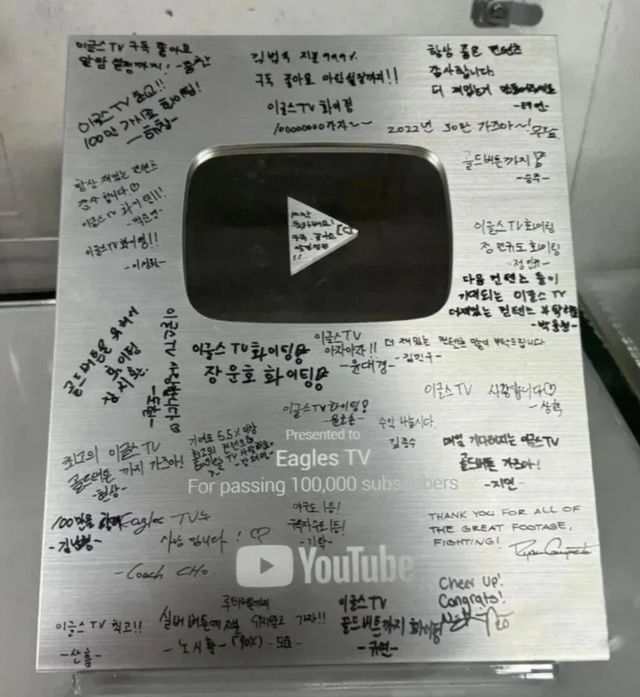 이글스TV 구독 좋아요
알람 설정까지!
이글스TV 최고!!
100만 가시죠 화이팅!
김범수 지분 99.9%
구독 좋아요 알림설정까지!!
이글스TV 화이팅
10000000가자~~
항상 좋은 컨텐츠
감사합니다.
더 재밌는거
-태연-
2022년 30만 가즈아~!
골드버튼까지
-승주-
항상 재밌는 컨텐츠
감사합니다♡
이글스TV 화이팅!!!
이글스TV 화이팅!!
이글스TV 화이팅
정민규도 화이팅
-정민규-
다음 컨텐츠 들이
기대되는 이글스TV
더재밌는 컨텐츠 부탁해요
구독 좋아요
알림설정
!!
골드버튼을 위해
화이팅
장시환
이글스TV 화이팅
장운호 화이팅
이글스TV
아자아자!!
-윤대경-
더 재밌는 컨텐츠 만들어 부탁드립니다.
-김민우-
이글스TV 사랑합니다♡
-상혁-
이글스TV 화이팅!
수익 나눕시다.
김종수
매일 기다려지는 이글스TV
골드버튼 가즈아!
-지연-
최고의 이글스TV
골드버튼 까지 가즈아!
-현상-
기여도 5.5% 이상
최고의 컨텐츠
Eagles TV
Presented to
Eagles TV
For passing 100,000 subscribers
100만을 향해
Eagles TV는
사랑 입니다! ♡
-Coach CHO-
야구도 1등!
구독자수도 1등!
THANK YOU FOR ALL OF
THE GREAT FOOTAGE,
FIGHTING!
YouTube
Cheer Up!
Congrats!
이글스TV 최고!!
-산흠-
루비버튼까지
실버 버튼에 지분
가자!!
-노시환- (90%)
이글스TV
골드버튼까지 화이팅
-규연-